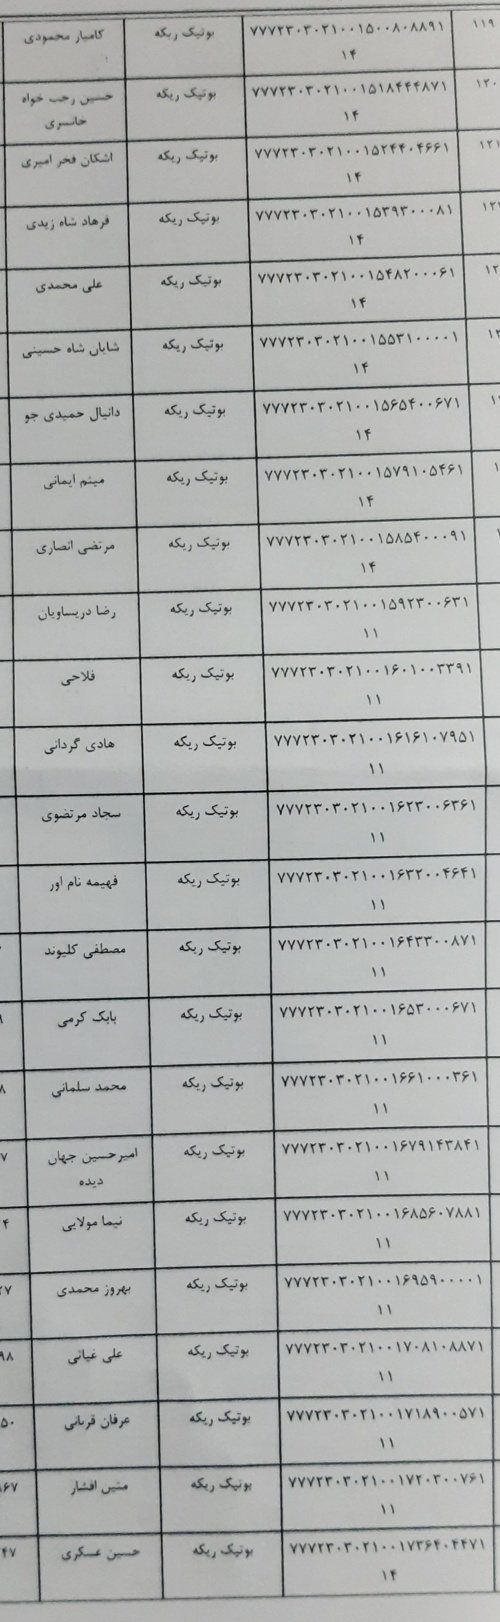 ۱۱۹ ۷۷۷۲۳۰۳۰۲۱۰۰۱۵۰۰۸۰۸۸۹۱ بوتیک ریکه کامیار محمودی
۱۴
۱۲۰ ۷۷۷۲۳۰۳۰۲۱۰۰۱۵۱۸۴۴۴۸۷۱ بوتیک ریکه حسین رجب خواه
۱۴ خانسری
۱۲۱ ۷۷۷۲۳۰۳۰۲۱۰۰۱۵۲۴۴۰۴۶۶۱ بوتیک ریکه اشکان فخر امیری
۱۴
۷۷۷۲۳۰۳۰۲۱۰۰۱۵۳۹۳۰۰۰۸۱ بوتیک ریکه فرهاد شاه زیدی
۱۴
۷۷۷۲۳۰۳۰۲۱۰۰۱۵۴۸۲۰۰۰۶۱ بوتیک ریکه علی محمدی
۱۴
۷۷۷۲۳۰۳۰۲۱۰۰۱۵۵۳۱۰۰۰۰۱ بوتیک ریکه شایان شاه حسینی
۱۴
۷۷۷۲۳۰۳۰۲۱۰۰۱۵۶۵۴۰۰۶۷۱ بوتیک ریکه دانیال حمیدی جو
۱۴
۷۷۷۲۳۰۳۰۲۱۰۰۱۵۷۹۱۰۵۴۶۱ بوتیک ریکه میثم ایمانی
۱۴
۷۷۷۲۳۰۳۰۲۱۰۰۱۵۸۵۴۰۰۰۹۱ بوتیک ریکه مرتضی انصاری
۱۴
۷۷۷۲۳۰۳۰۲۱۰۰۱۵۹۲۳۰۰۶۳۱ بوتیک ریکه رضا دریساویان
۱۱
۷۷۷۲۳۰۳۰۲۱۰۰۱۶۰۱۰۰۳۳۹۱ بوتیک ریکه فلاحی
۱۱
۷۷۷۲۳۰۳۰۲۱۰۰۱۶۱۶۱۰۷۹۵۱ بوتیک ریکه هادی گردانی
۱۱
۷۷۷۲۳۰۳۰۲۱۰۰۱۶۲۳۰۰۶۳۶۱ بوتیک ریکه سجاد مرتضوی
۱۱
۷۷۷۲۳۰۳۰۲۱۰۰۱۶۳۲۰۰۴۶۴۱ بوتیک ریکه فهیمه نام اور
۱۱
۷۷۷۲۳۰۳۰۲۱۰۰۱۶۴۳۳۰۰۸۷۱ بوتیک ریکه مصطفی کلیوند
۱۱
۷۷۷۲۳۰۳۰۲۱۰۰۱۶۵۳۰۰۰۶۷۱ بوتیک ریکه بابک کرمی
۱۱
۷۷۷۲۳۰۳۰۲۱۰۰۱۶۶۱۰۰۰۳۶۱ بوتیک ریکه محمد سلمانی ۸
۱۱
۷۷۷۲۳۰۳۰۲۱۰۰۱۶۷۹۱۴۳۸۴۱ بوتیک ریکه امیرحسین جهان ۷
۱۱ دیده
۷۷۷۲۳۰۳۰۲۱۰۰۱۶۸۵۶۰۷۸۸۱ بوتیک ریکه نیما مولایی ۴
۱۱
۷۷۷۲۳۰۳۰۲۱۰۰۱۶۹۵۹۰۰۰۰۱ بوتیک ریکه بهروز محمدی ۲۷
۱۱
۷۷۷۲۳۰۳۰۲۱۰۰۱۷۰۸۱۰۸۸۷۱ بوتیک ریکه علی غیاثی ۹۸
۱۱
۷۷۷۲۳۰۳۰۲۱۰۰۱۷۱۸۹۰۰۵۷۱ بوتیک ریکه عرفان قربانی ۵۰
۱۱
۷۷۷۲۳۰۳۰۲۱۰۰۱۷۲۰۳۰۰۷۶۱ بوتیک ریکه متین افشار ۶۷
۱۱
۷۷۷۲۳۰۳۰۲۱۰۰۱۷۳۶۴۰۴۴۷۱ بوتیک ریکه حسین عسکری ۴۷
۱۴